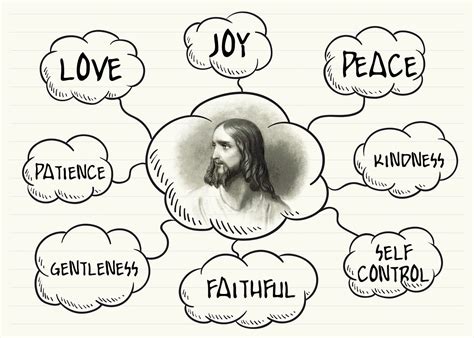 LOVE
JOY
PEACE
PATIENCE
KINDNESS
GENTLENESS
FAITHFUL
SELF
CONTROL